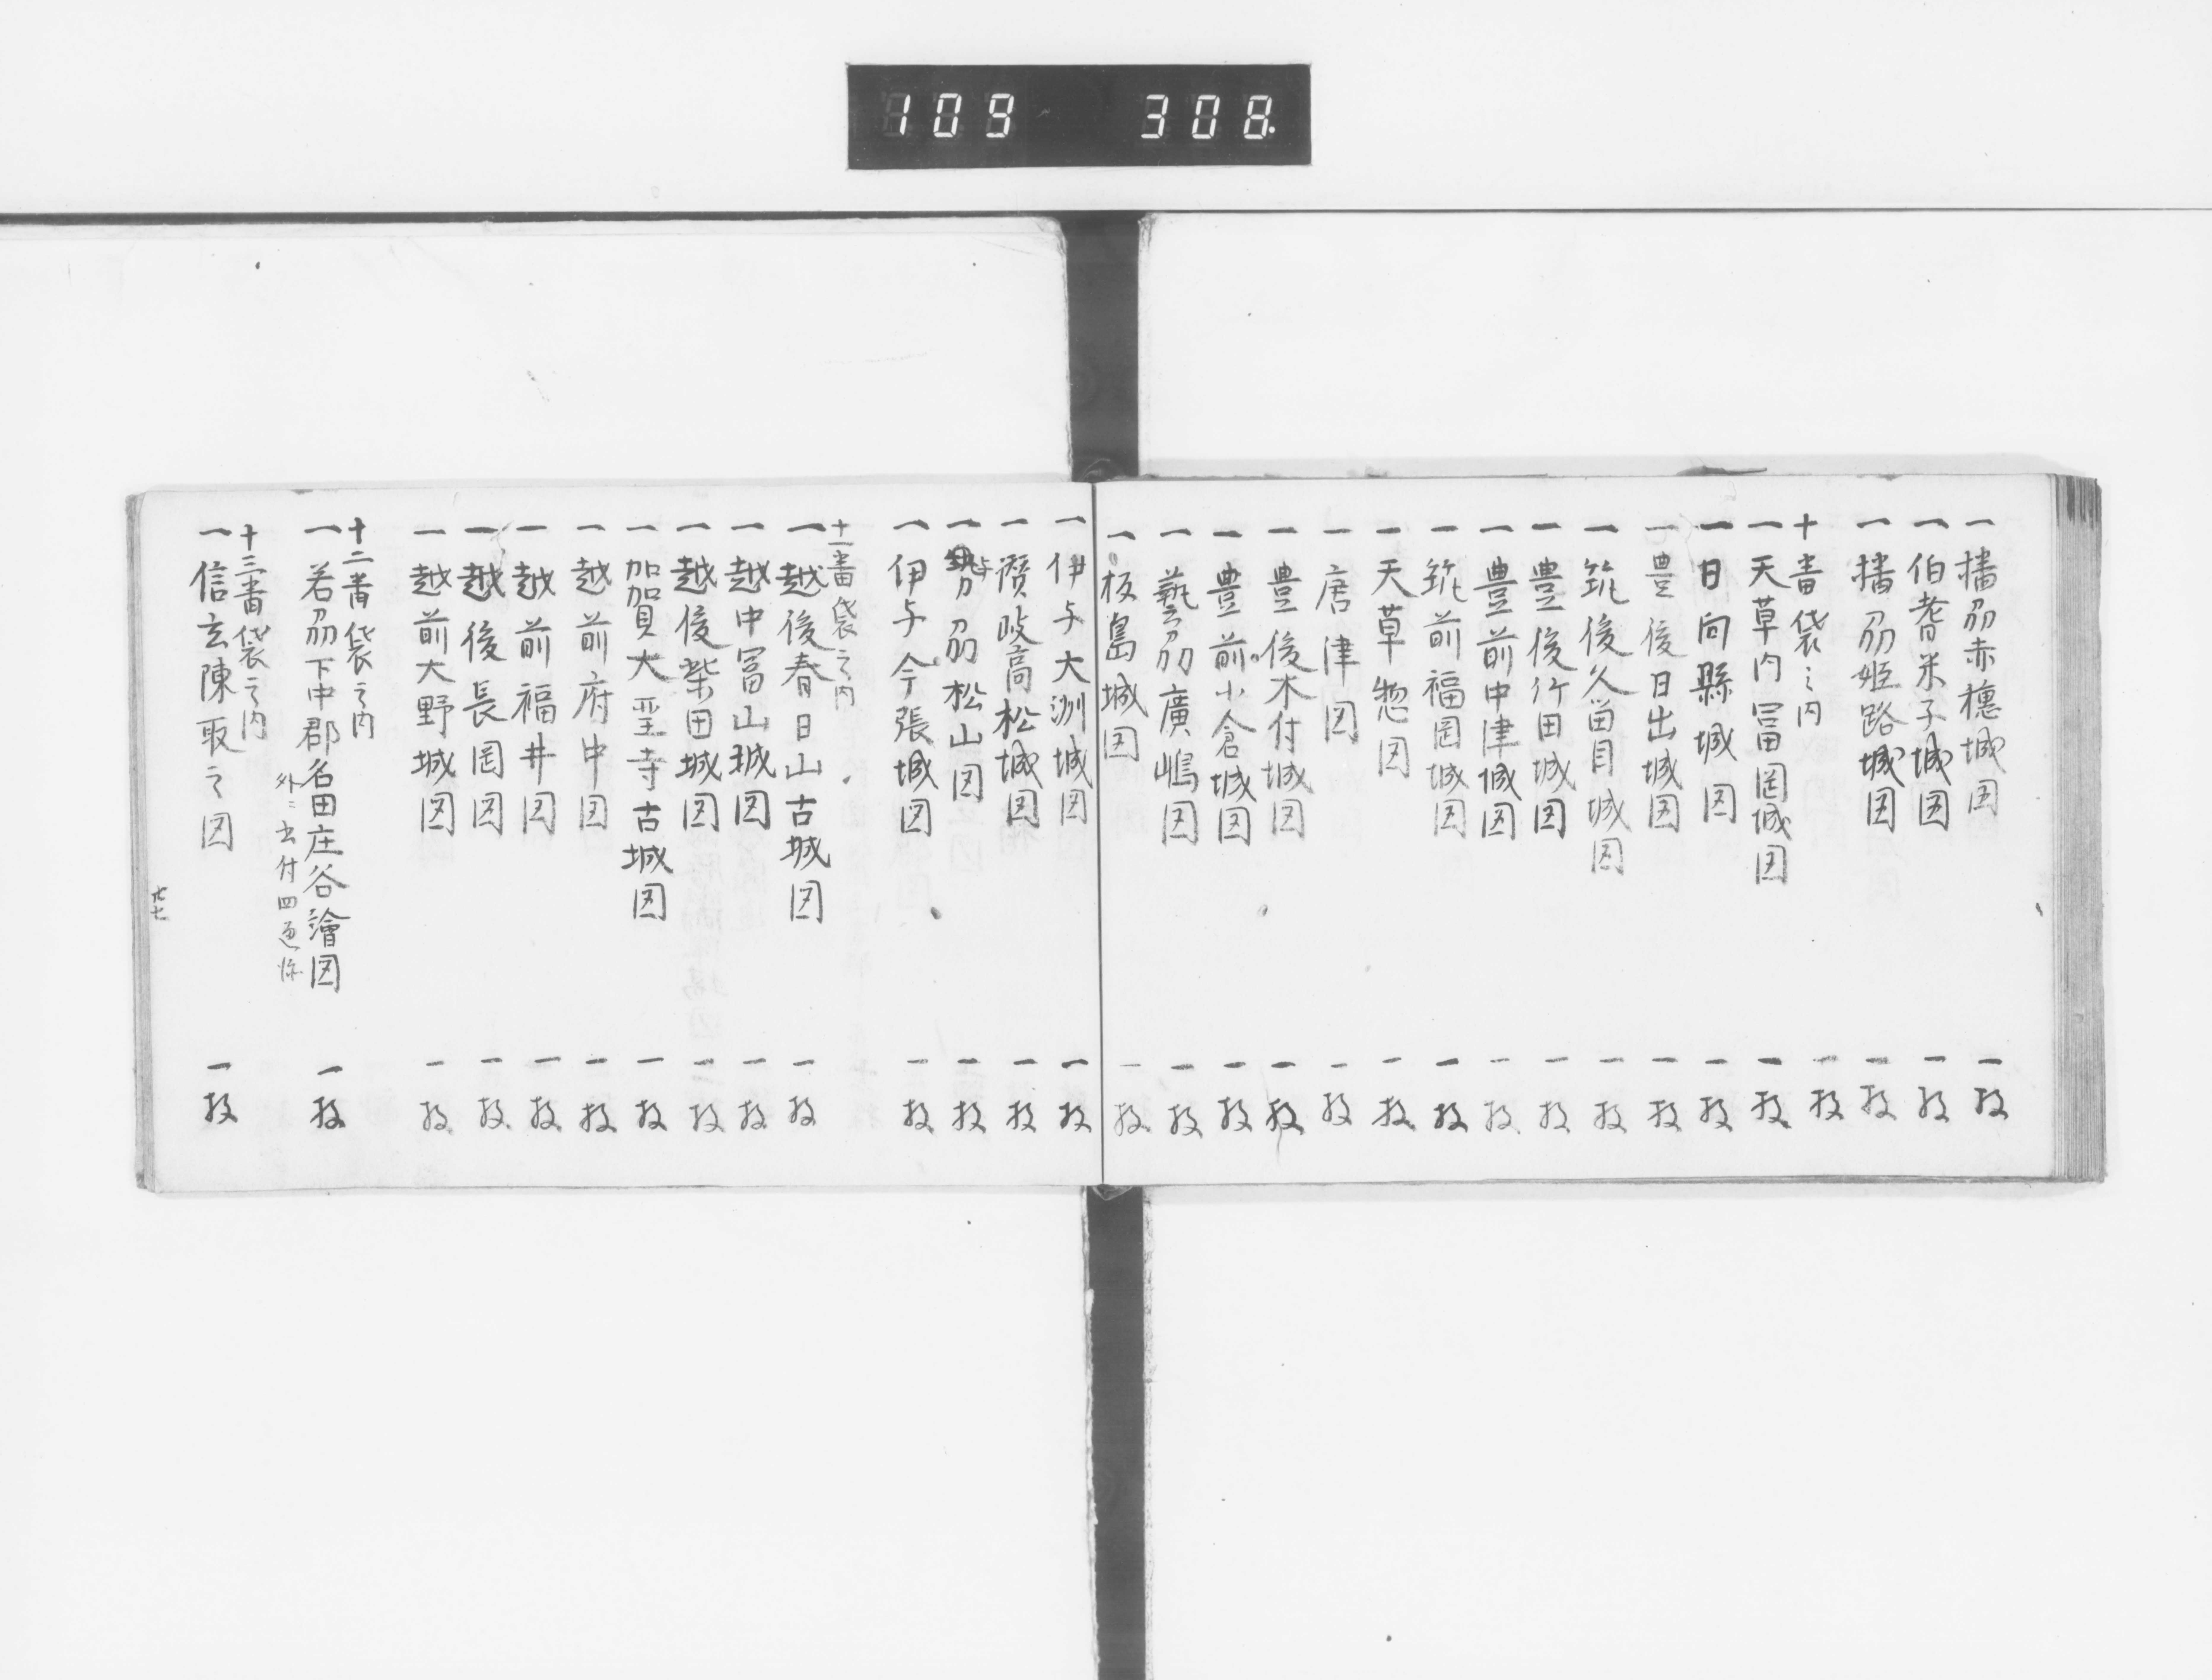 109 308
一播刕赤穗城図 一枚
一伯耆米子城図 一枚
一播刕姫路城図 一枚
十番袋之内 一枚
一天草内冨岡城図 一枚
一日向縣城図 一枚
一豊後日出城図 一枚
一筑後久留目城図 一枚
一豊後竹田城図 一枚
一豊前中津城図 一枚
一筑前福岡城図 一枚
一天草惣図 一枚
一唐津図 一枚
一豊後木付城図 一枚
一豊前小倉城図 一枚
一藝刕廣嶋図 一枚
一板島城図 一枚
一伊与大洲城図 一枚
一讃岐高松城図 一枚
一刕松山図 一枚
一伊与今張城図 一枚
十一番袋之内
一越後春日山古城図 一枚
一越中冨山城図 一枚
一越後柴田城図 一枚
一加賀大聖寺古城図 一枚
一越前府中図 一枚
一越前福井図 一枚
一越後長岡図 一枚
一越前大野城図 一枚
十二番袋之内
一若刕下中郡名田庄谷繪図 一枚
外ニ書付四通
十三番袋之内
一信玄陳取之図 一枚